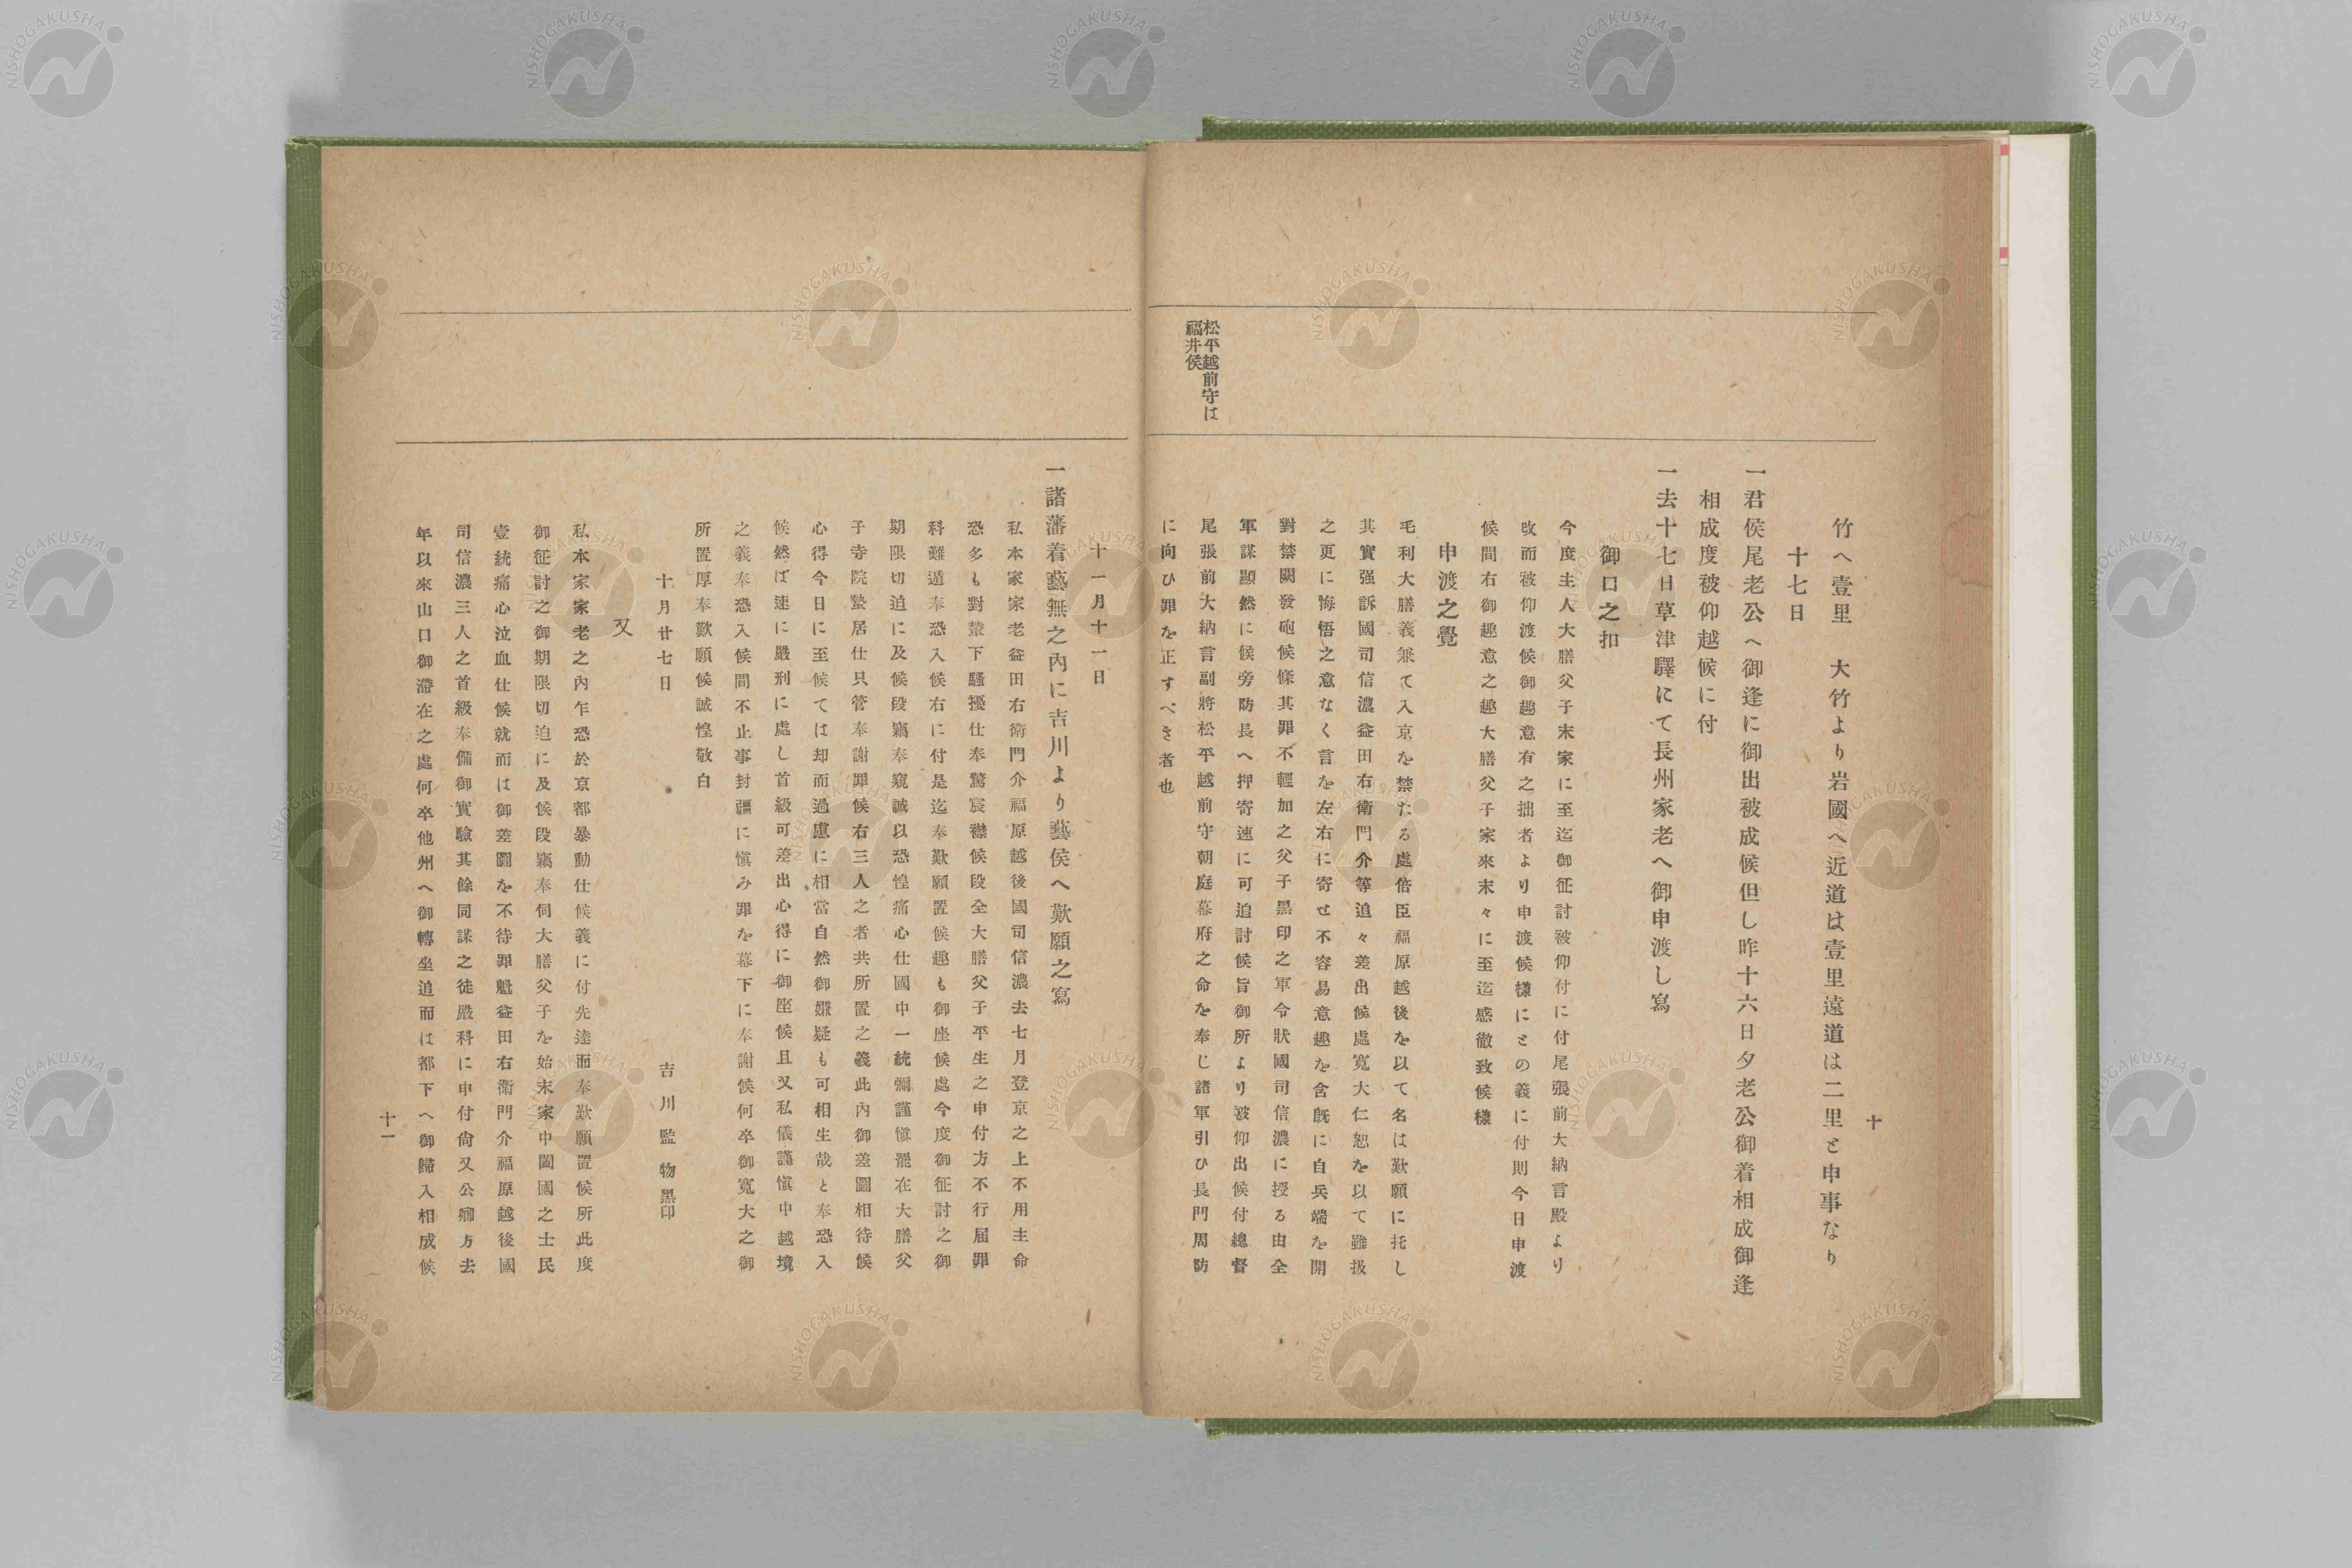 十
竹へ壹里　大竹より岩國へ近道は壹里遠道は二里と申事なり
十七日
一君侯尾老公へ御逢に御出被成候但し昨十六日夕老公御着相成御逢
相成度被仰越候に付
一去十七日草津驛にて長州家老へ御申渡し寫
御口之扣
今度主人大膳父子末家に至迄御征討被仰付に付尾張前大納言殿より
改而被仰渡候御趣意有之拙者より申渡候樣にとの義に付則今日申渡
候間右御趣意之趣大膳父子家來末々に至迄感徹致候樣
申渡之覺
毛利大膳義兼て入京を禁たる處倍臣福原越後を以て名は歎願に托し
其實强訴國司信濃益田右衛門介等追々差出候處寬大仁恕を以て雖扱
之更に悔悟之意なく言を左右に寄せ不容易意趣を含既に自兵端を開
對禁闕發砲候條其罪不輕加之父子黑印之軍令狀國司信濃に授る由全
軍謀顯然に候旁防長へ押寄速に可追討候旨御所より被仰出候付總督
尾張前大納言副將松平越前守朝庭幕府之命を奉じ諸軍引ひ長門周防
に向ひ罪を正すべき者也
松平越前守は
福井侯
十一月十一日
一諸藩着藝無之內に吉川より藝侯へ歎願之寫
私本家家老益田右衛門介福原越後國司信濃去七月登京之上不用主命
恐多も對輦下騷擾仕奉驚宸襟候段全大膳父子平生之申付方不行届罪
科難遁奉恐入候右に付是迄奉歎願置候趣も御座候處今度御征討之御
期限切迫に及候段竊奉窺誠以恐惶痛心仕國中一統彌謹愼罷在大膳父
子寺院蟄居仕只管奉謝罪候右三人之者共所置之義此內御差圖相待候
心得今日に至候ては却而過慮に相當自然御嫌疑も可相生哉と奉恐入
候然ば速に嚴刑に處し首級可差出心得に御座候且又私儀謹愼中越境
之義奉恐入候間不止事封疆に愼み罪を幕下に奉謝候何卒御寬大之御
所置厚奉歎願候誠惶敬白
十月廿七日
吉川監物黑印
又
私本家家老之內乍恐於京都暴動仕候義に付先達而奉歎願置候所此度
御征討之御期限切迫に及候段竊奉伺大膳父子を始末家中闔國之士民
壹統痛心泣血仕候就而は御差圖を不待罪魁益田右衛門介福原越後國
司信濃三人之首級奉備御實驗其餘同謀之徒嚴科に申付尙又公卿方去
年以來山口御滯在之處何卒他州へ御轉坐追而は都下へ御歸入相成候
十一
NISHOGAKUSHA